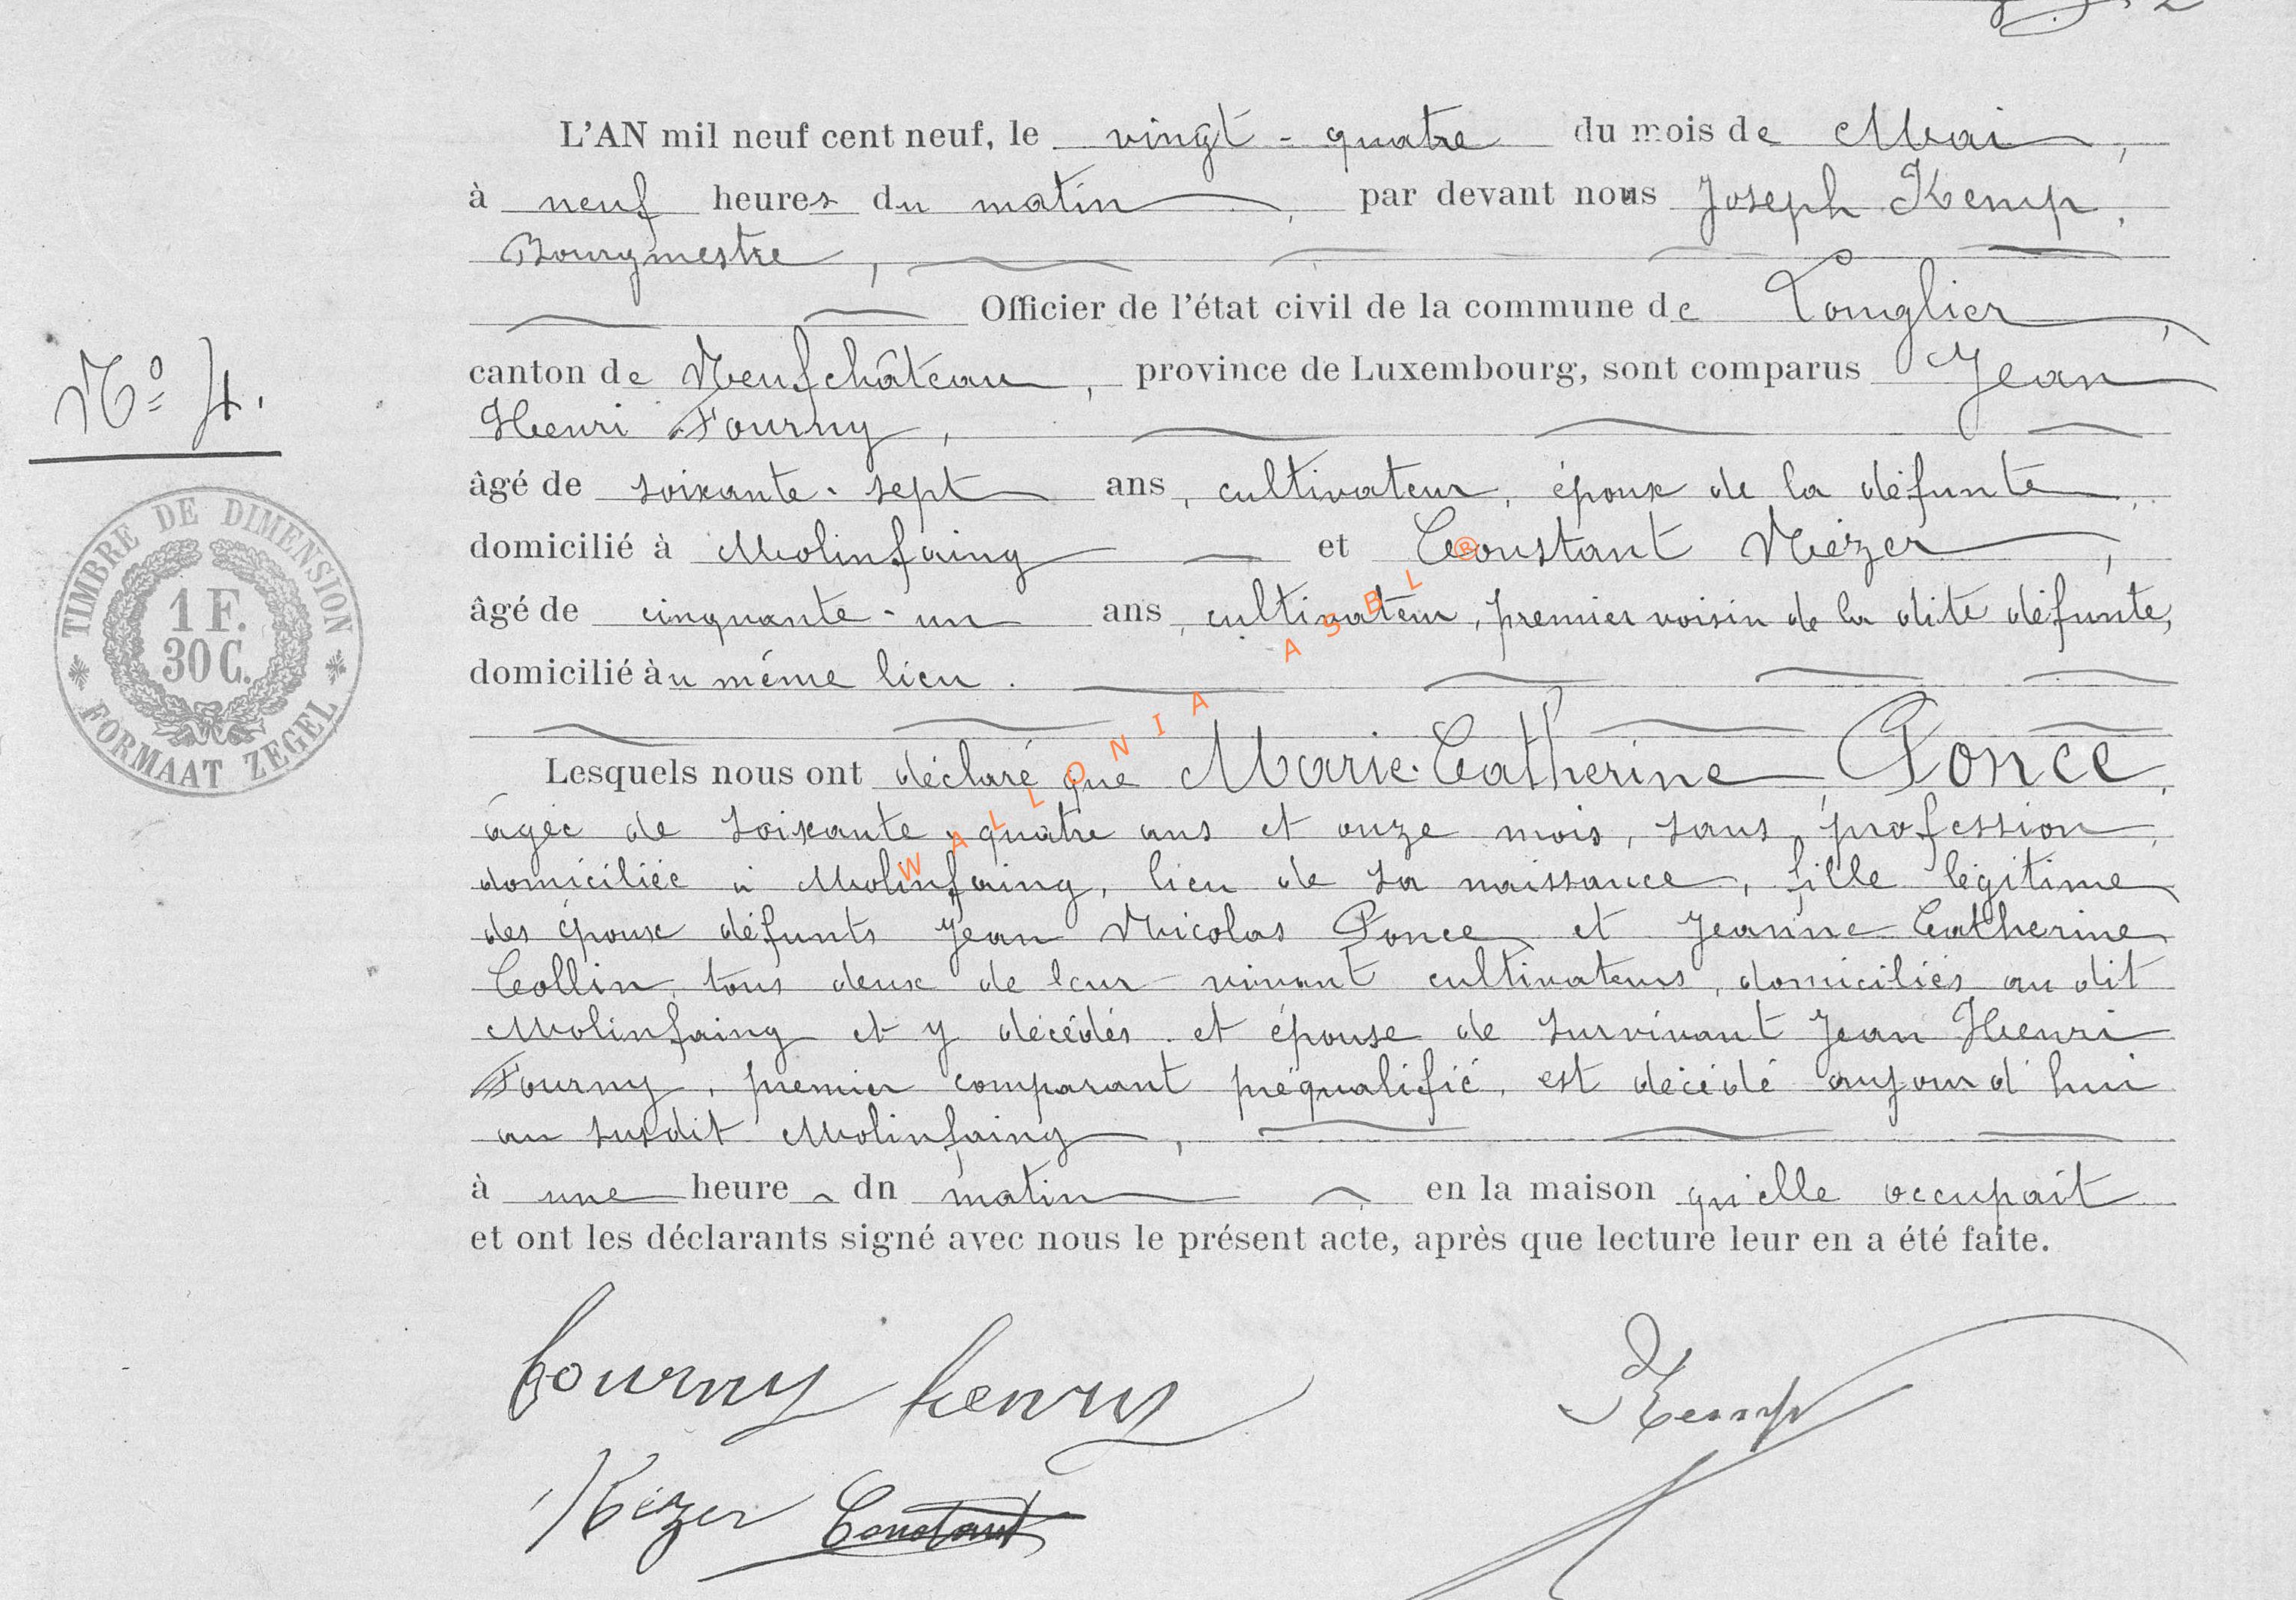 L'AN mil neuf cent neuf, le vingt-quatre du mois de Mai,
à neuf heures du matin, par devant nous Joseph Kemp,
Bourgmestre,
Officier de l'état civil de la commune de Longlier,
canton de Neufchâteau, province de Luxembourg, sont comparus Jean
Henri Fourny,
N° 4.
âgé de soixante-sept ans, cultivateur, époux de la défunte,
domicilié à Molinfaing et Constant Mézer,
âgé de cinquante-un ans, cultivateur, premier voisin de la dite défunte,
domicilié au même lieu.
TIMBRE DE DIMENSION
1 F.
30 C.
FORMAAT ZEGEL
Lesquels nous ont déclaré que Marie-Catherine Ponce,
âgée de soixante-quatre ans et onze mois, sans profession,
domiciliée à Molinfaing, lieu de sa naissance, fille légitime
des époux défunts Jean Nicolas Ponce et Jeanne Catherine
Collin, tous deux de leur vivant cultivateurs, domiciliés au dit
Molinfaing et y décédés et épouse de survivant Jean Henri
Fourny, premier comparant préqualifié, est décédé aujourd'hui
au susdit Molinfaing,
à une heure du matin en la maison qu'elle occupait
et ont les déclarants signé avec nous le présent acte, après que lecture leur en a été faite.
WALLONIA ASBL ®
fourny henry
Kemp
Constant